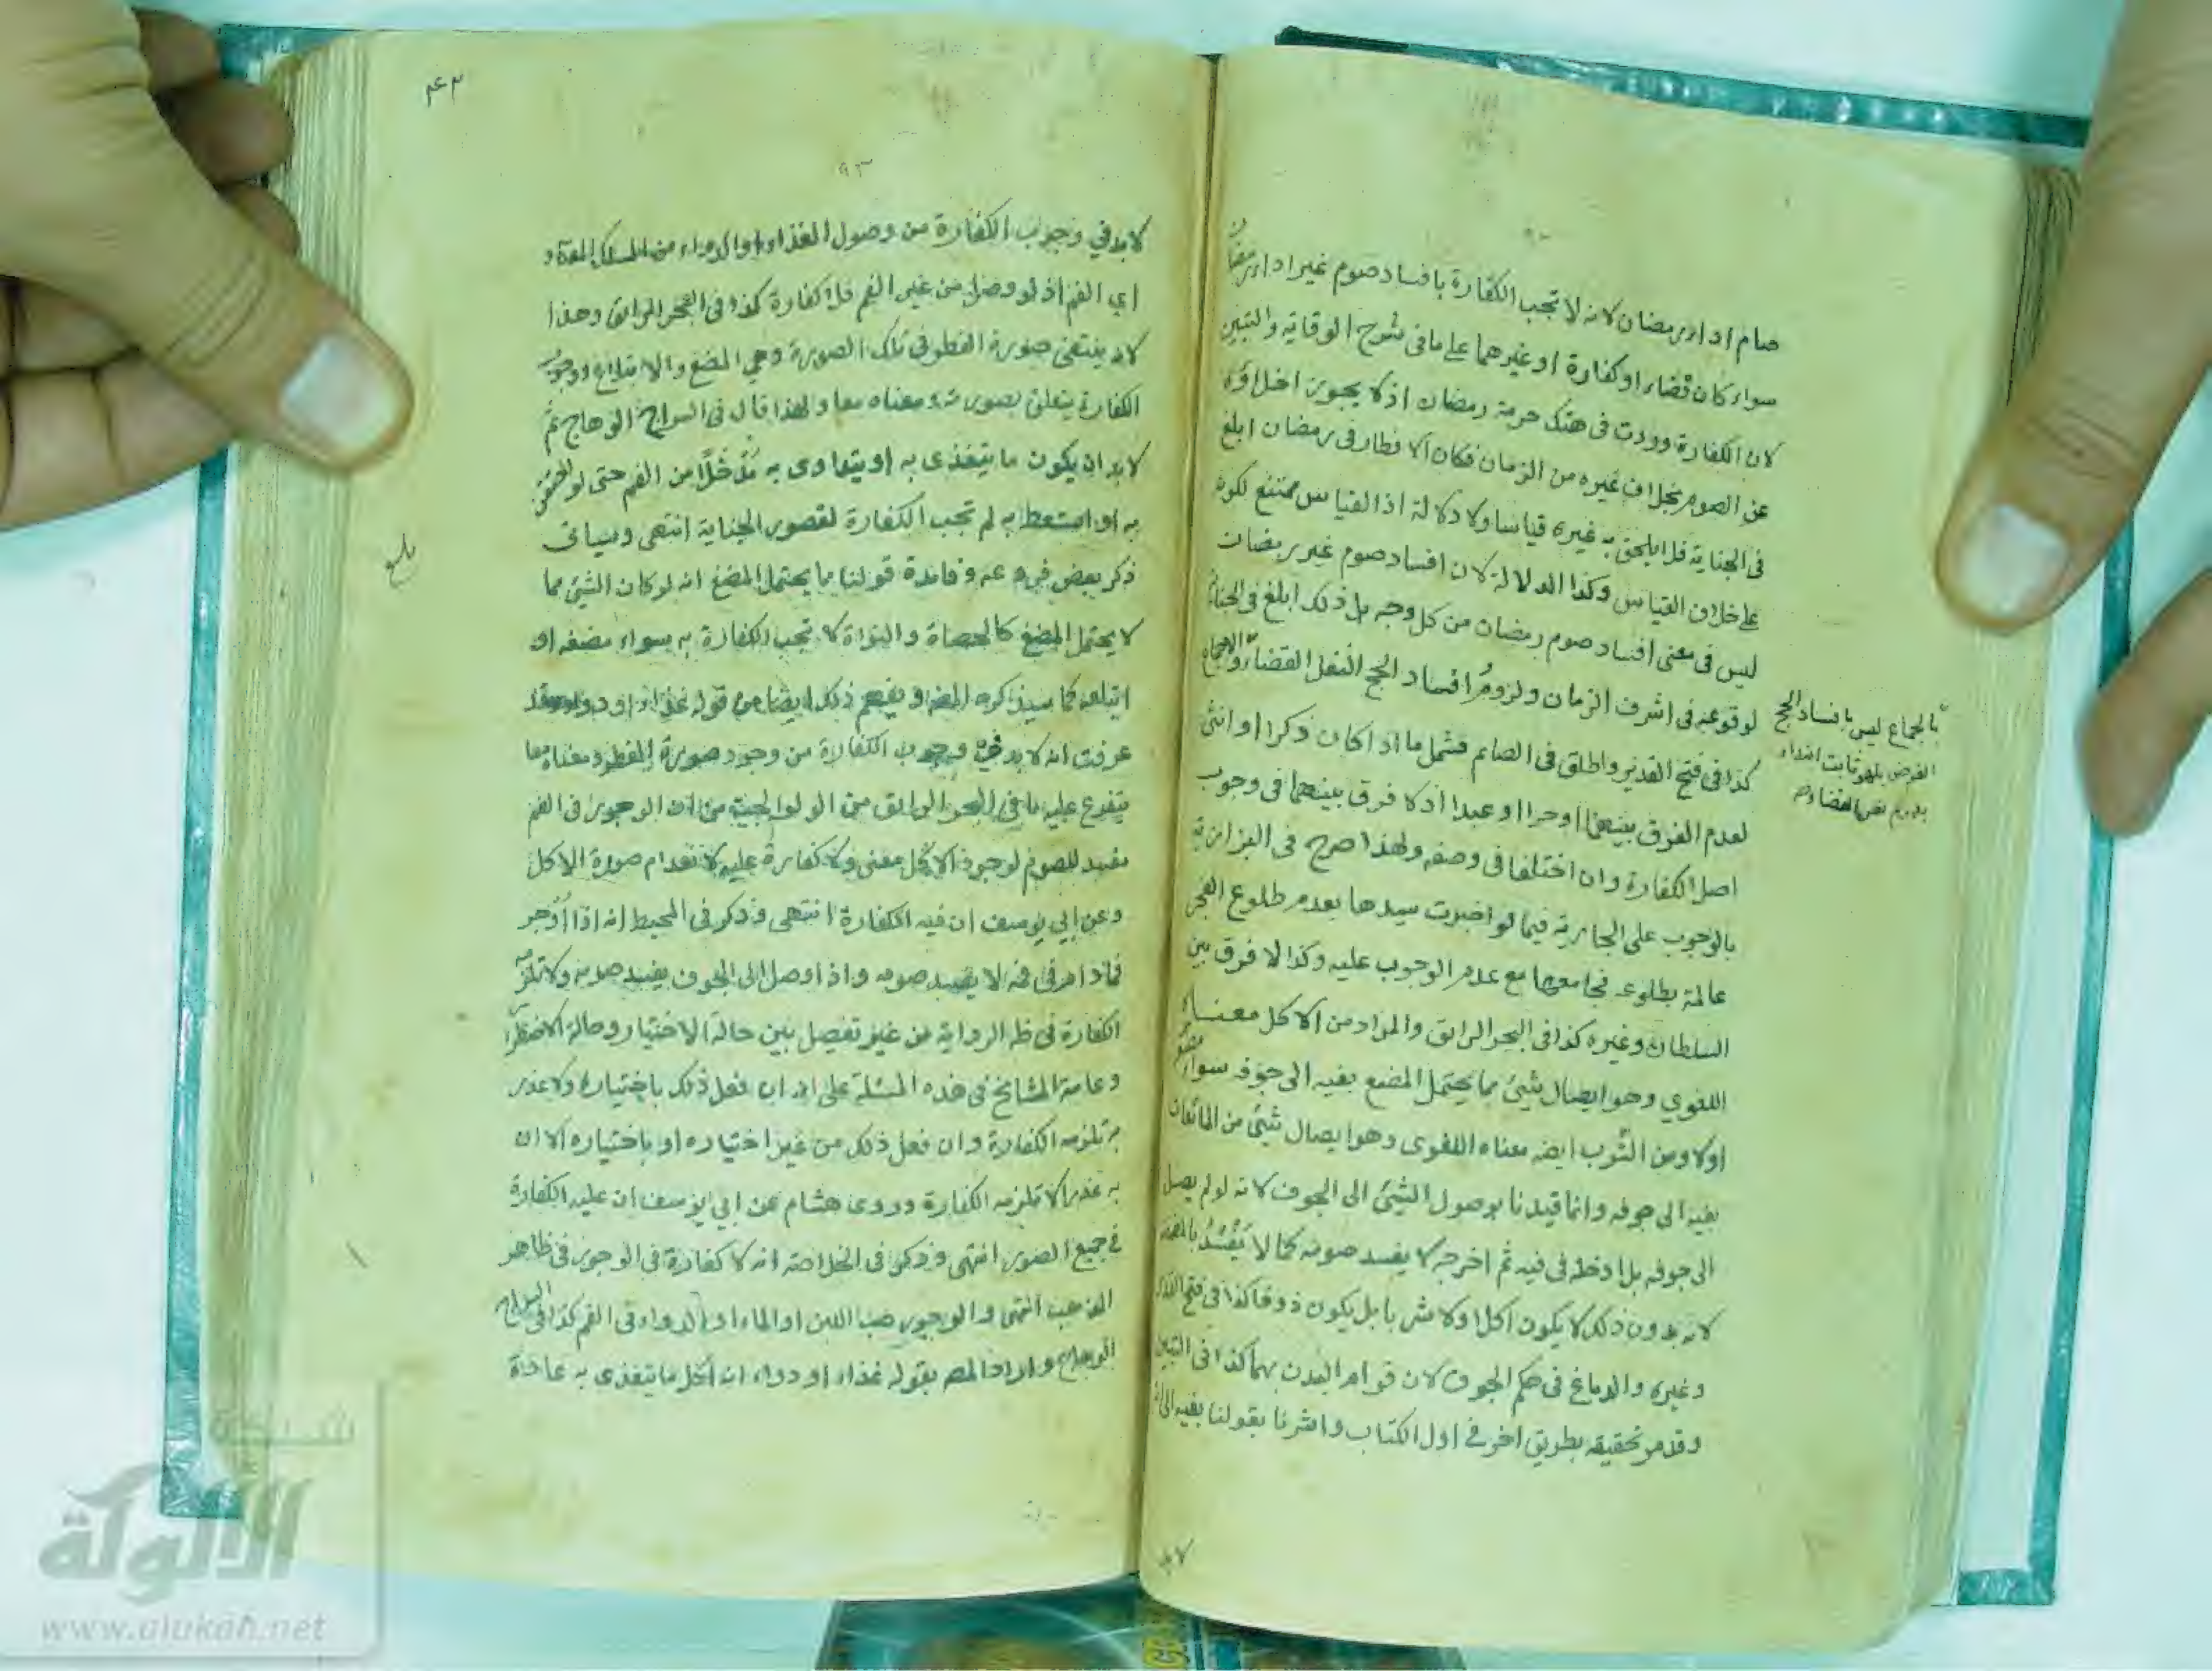 صام اداء رمضان لانه لا تجب الكفارة بافساد صوم غير اداء رمضان
سواء كان قضاء او كفارة او غيرهما على ما فى شروح الوقاية والتبيين
لان الكفارة وردت فى هتك حرمة رمضان اذ لا يجوز اخلاؤه
عن الصوم بخلاف غيره من الزمان فكان الافطار فى رمضان ابلغ
فى الجناية فلا يلحق به غيره قياسا ولا دلالة اذ القياس ممتنع لكونه
على خلاف القياس وكذا الدلالة لان افساد صوم غير رمضان
ليس فى معنى افساد صوم رمضان من كل وجه بل ذلك ابلغ فى الجناية
لوقوعه فى اشرف الزمان ولزوم افساد الحج النفل القضاء
كذا فى فتح القدير واطلق فى الصائم فشمل ما اذا كان ذكرا او انثى
لعدم الفرق بينهما او حرا او عبدا اذ لا فرق بينهما فى وجوب
اصل الكفارة وان اختلفا فى وصفه ولهذا صرح فى البزازية
بالوجوب على الجارية فيما لو اخبرت سيدها بعدم طلوع الفجر
عالمة بطلوعه فجامعها مع عدم الوجوب عليه وكذا لا فرق بين
السلطان وغيره كذا فى البحر الرائق والمراد من الاكل معناه
اللغوي وهو ايصال شيئ مما يحتمل المضغ بفيه الى جوفه سواء مضغ
اولا ومن الشرب ايضه معناه اللغوى وهو ايصال شيئ من المائعات
بفيه الى جوفه وانما قيدنا بوصول الشيئ الى الجوف لانه لو لم يصل
الى جوفه بل ادخله فى فيه ثم اخرجه لا يفسد صومه كما لا يفسد
لانه بدون ذلك لا يكون اكلا ولا شربا بل يكون ذوقا كذا فى فتح القدير
وغيره والدماغ فى حكم الجوف لان قوام البدن بهما كذا فى التبيين
وقد مر تحقيقه بطريق اخر فى اول الكتاب واشرنا بقولنا بفيه الى انه
بالاجماع ليس بافساد الحج
الفرض بل هو ثابت ابتداء
لابد
٩٣
لابد في وجوب الكفارة من وصول الغذاء او الدواء من المسلك المعتاد
اي الفم اذ لو وصل من غير الفم فلا كفارة كذا فى البحر الرائق وهذا
لانه ينتفى صورة الفطر فى تلك الصورة وهي المضغ والابتلاع ووجوب
الكفارة يتعلق بصورته ومعناه معا ولهذا قال فى السراج الوهاج ثم
لابد ان يكون ما يتغذى به او يتداوى به مدخلا من الفم حتى لو احتقن
به او استعط به لم تجب الكفارة لقصور الجناية انتهى وسياتى
ذكر بعض فروعه وفائدة قولنا مما يحتمل المضغ انه لو كان الشيئ مما
لا يحتمل المضغ كالحصاة والنواة لا تجب الكفارة به سواء مضغه او
ابتلعه كما سيذكره المصه ويفهم ذلك ايضا من قوله غذاء او دواء وقد
عرفت انه لابد فى وجوب الكفارة من وجود صورة الفطر ومعناه معا
يتفرع عليه ما فى البحر الرائق من الولوالجية من ان الوجور فى الفم
مفسد للصوم لوجود الاكل معنى ولا كفارة عليه لانعدام صورة الاكل
وعن ابي يوسف ان فيه الكفارة انتهى وذكر فى المحيط انه اذا اوجر
فما دام فى فمه لا يفسد صومه واذا وصل الى الجوف يفسد صومه ولا تلزمه
الكفارة فى ظه الرواية من غير تفصيل بين حالة الاختيار وحالة الاضطرار
وعامة المشايخ فى هذه المسئلة على انه ان فعل ذلك باختياره ولا عذر
به تلزمه الكفارة وان فعل ذلك من غير اختياره او باختياره الا ان
به عذرا لا تلزمه الكفارة وروى هشام عن ابي يوسف ان عليه الكفارة
فى جميع الصور انتهى وذكر فى الخلاصة انه لا كفارة فى الوجور فى ظاهر
المذهب انتهى والوجور صب اللبن او الماء او الدواء فى الفم كذا فى السراج
الوهاج واراد المصه بقوله غذاء او دواء ان اكل ما يتغذى به عادة
بلغ
شبكة
الألوكة
www.alukah.net